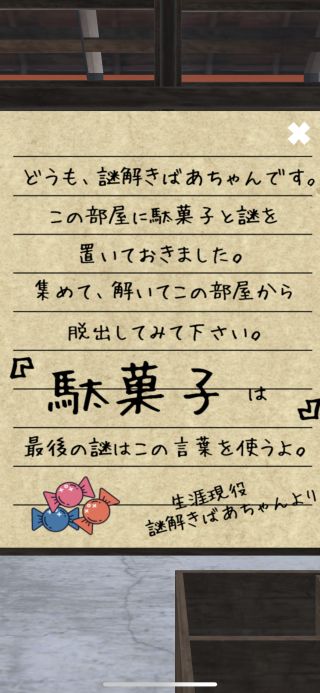 どうも、謎解きばあちゃんです。
この部屋に駄菓子と謎を
置いておきました。
集めて、解いてこの部屋から
脱出してみて下さい。
『駄菓子』は
最後の謎はこの言葉を使うよ。
生涯現役
謎解きばあちゃんより